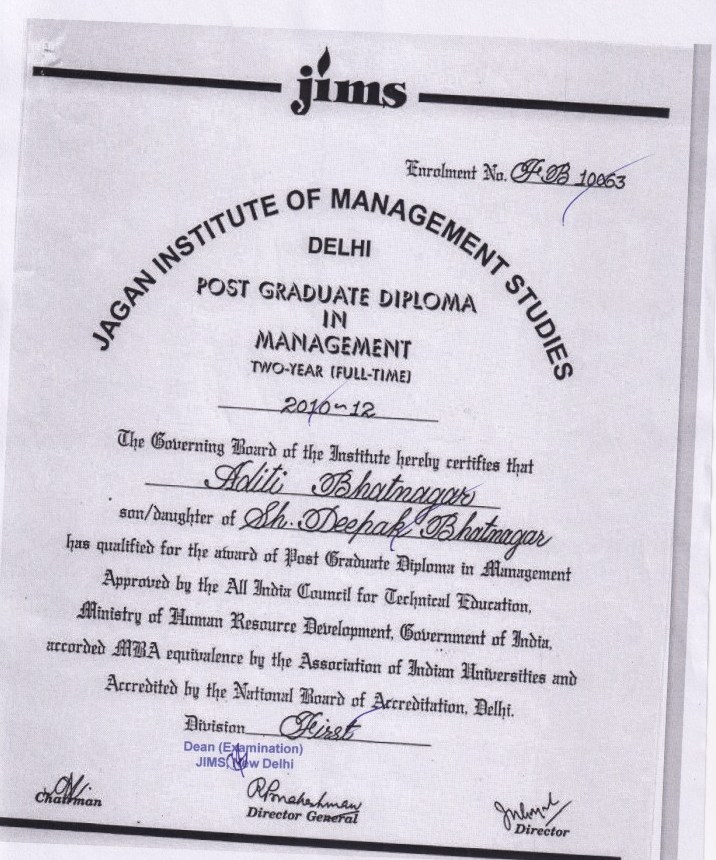 jims
Enrolment No. FB 10063
JAGAN INSTITUTE OF MANAGEMENT STUDIES
DELHI
POST GRADUATE DIPLOMA
IN
MANAGEMENT
TWO-YEAR (FULL-TIME)
2010-12
The Governing Board of the Institute hereby certifies that
Aditi Bhatnagar
son/daughter of Sh. Deepak Bhatnagar
has qualified for the award of Post Graduate Diploma in Management
Approved by the All India Council for Technical Education,
Ministry of Human Resource Development, Government of India,
accorded MBA equivalence by the Association of Indian Universities and
Accredited by the National Board of Accreditation, Delhi.
Division First
Dean (Examination)
JIMS, New Delhi
Chairman
Director General
Director